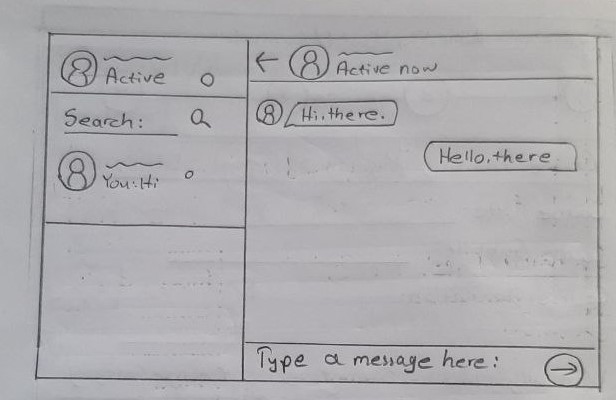 Active
Search:
You: Hi
Active now
Hi, there.
Hello, there
Type a message here: